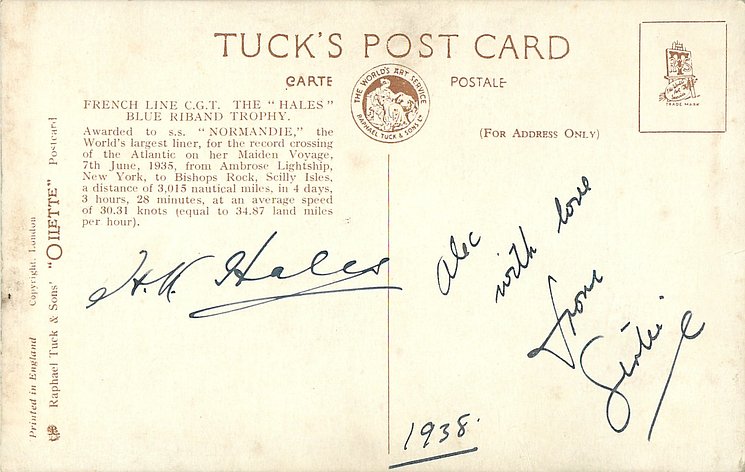 TUCK'S POST CARD
CARTE POSTALE
THE WORLD'S ART SERVICE
RAPHAEL TUCK & SONS LD
TRADE MARK
(FOR ADDRESS ONLY)
FRENCH LINE C.G.T. THE "HALES"
BLUE RIBAND TROPHY.
Awarded to s.s. "NORMANDIE," the
World's largest liner, for the record crossing
of the Atlantic on her Maiden Voyage,
7th June, 1935, from Ambrose Lightship,
New York, to Bishops Rock, Scilly Isles,
a distance of 3,015 nautical miles, in 4 days,
3 hours, 28 minutes, at an average speed
of 30.31 knots (equal to 34.87 land miles
per hour).
H.K. Hales
Alec
with love
from
1938.
Printed in England Copyright. London
Raphael Tuck & Sons' "OILETTE" Postcard